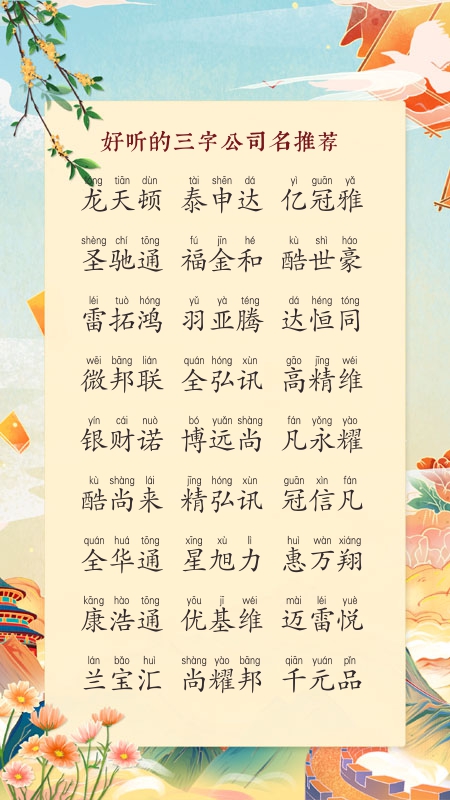 好听的三字公司名推荐
lóng tiān dùn tài shēn dá yì guān yǎ
龙天顿 泰申达 亿冠雅
shèng chí tōng fú jīn hé kù shì háo
圣驰通 福金和 酷世豪
léi tuò hóng yǔ yà téng dá héng tóng
雷拓鸿 羽亚腾 达恒同
wēi bāng lián quán hóng xùn gāo jīng wéi
微邦联 全弘讯 高精维
yín cái nuò bó yuǎn shàng fán yǒng yào
银财诺 博远尚 凡永耀
kù shàng lái jīng hóng xùn guān xìn fán
酷尚来 精弘讯 冠信凡
quán huá tōng xīng xù lì huì wàn xiáng
全华通 星旭力 惠万翔
kāng hào tōng yōu jī wéi mài léi yuè
康浩通 优基维 迈雷悦
lán bǎo huì shàng yào bāng qiān yuán pǐn
兰宝汇 尚耀邦 千元品